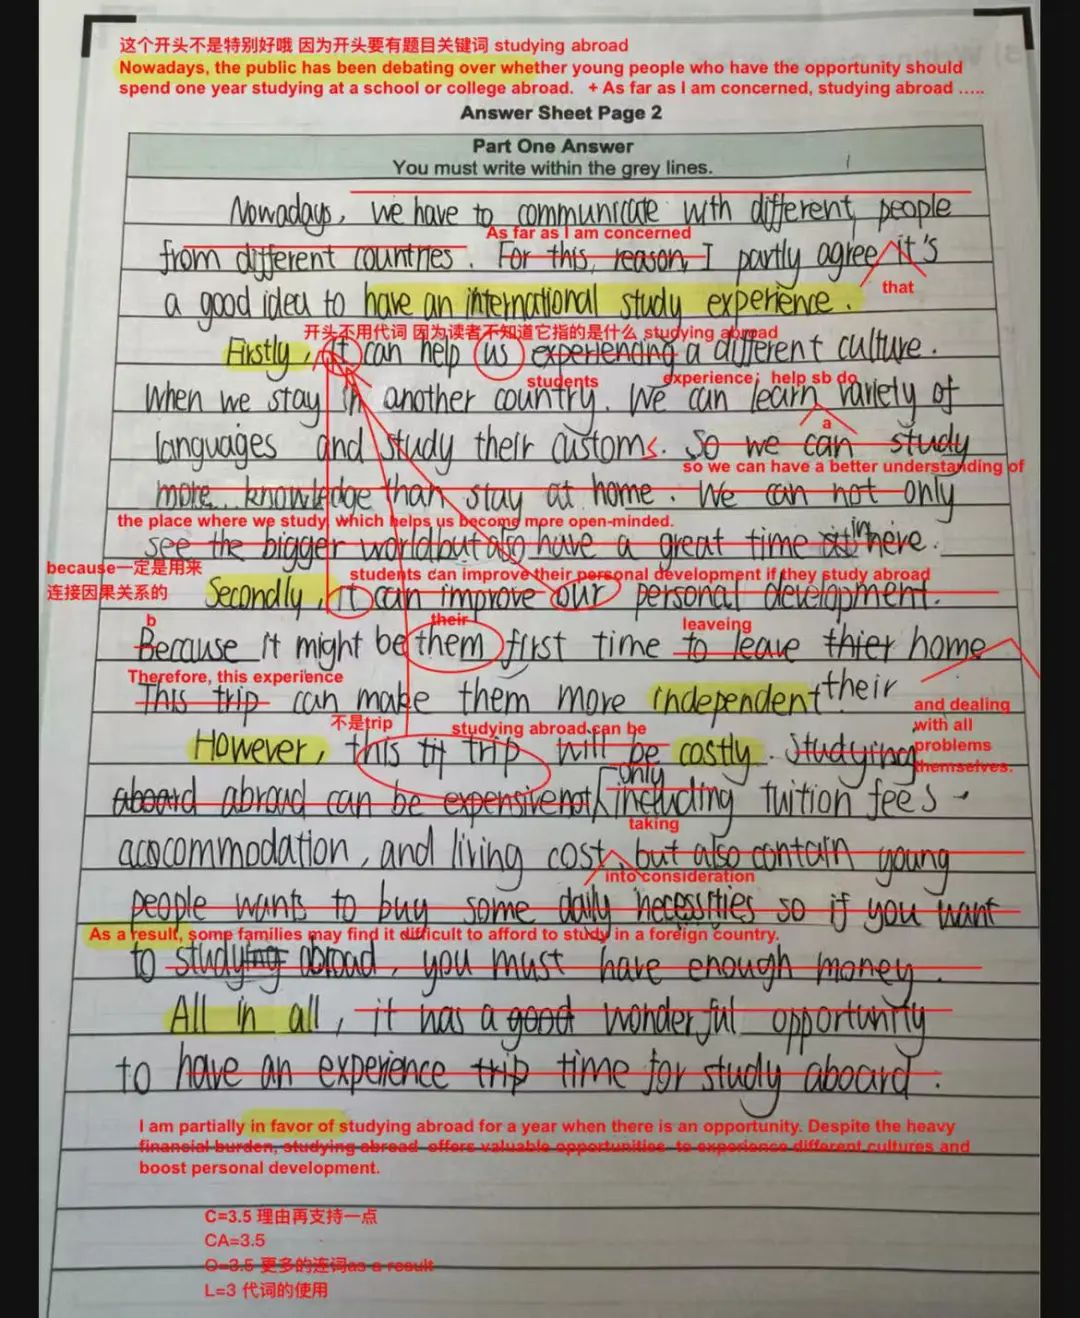 这个开头不是特别好哦 因为开头要有题目关键词 studying abroad
Nowadays, the public has been debating over whether young people who have the opportunity should
spend one year studying at a school or college abroad. + As far as I am concerned, studying abroad .....
Answer Sheet Page 2
Part One Answer
You must write within the grey lines.
Nowadays, we have to communicate with different people
As far as I am concerned
from different countries. For this, reason, I partly agree it's
that
a good idea to have an international study experience.
开头不用代词 因为读者不知道它指的是什么 studying abroad
Firstly, it can help us experiencing a different culture.
students experience; help sb do
When we stay in another country. We can learn variety of
a
languages and study their customs. So we can study
so we can have a better understanding of
more knowledge than stay at home. We can not only
the place where we study, which helps us become more open-minded.
see the bigger world but also have a great time in here.
because一定是用来
连接因果关系的
students can improve their personal development if they study abroad
Secondly, it can improve our personal development.
b their leaveing
Because it might be them first time to leave thier home
Therefore, this experience
This trip can make them more independent their
and dealing
with all
problems
themselves.
不是trip studying abroad can be
However, this tit trip will be costly. Studying
only
aboard abroad can be expensive not including tuition fees
taking
acocommodation, and living cost, but also contain young
into consideration
people wants to buy some daily necessities so if you want
As a result, some families may find it difficult to afford to study in a foreign country.
to studying abroad, you must have enough money.
All in all, it has a good wonderful opportunity
to have an experience trip time for study aboard.
I am partially in favor of studying abroad for a year when there is an opportunity. Despite the heavy
financial burden, studying abroad offers valuable opportunities to experience different cultures and
boost personal development.
C=3.5 理由再支持一点
CA=3.5
O=3.5 更多的连词as a result
L=3 代词的使用